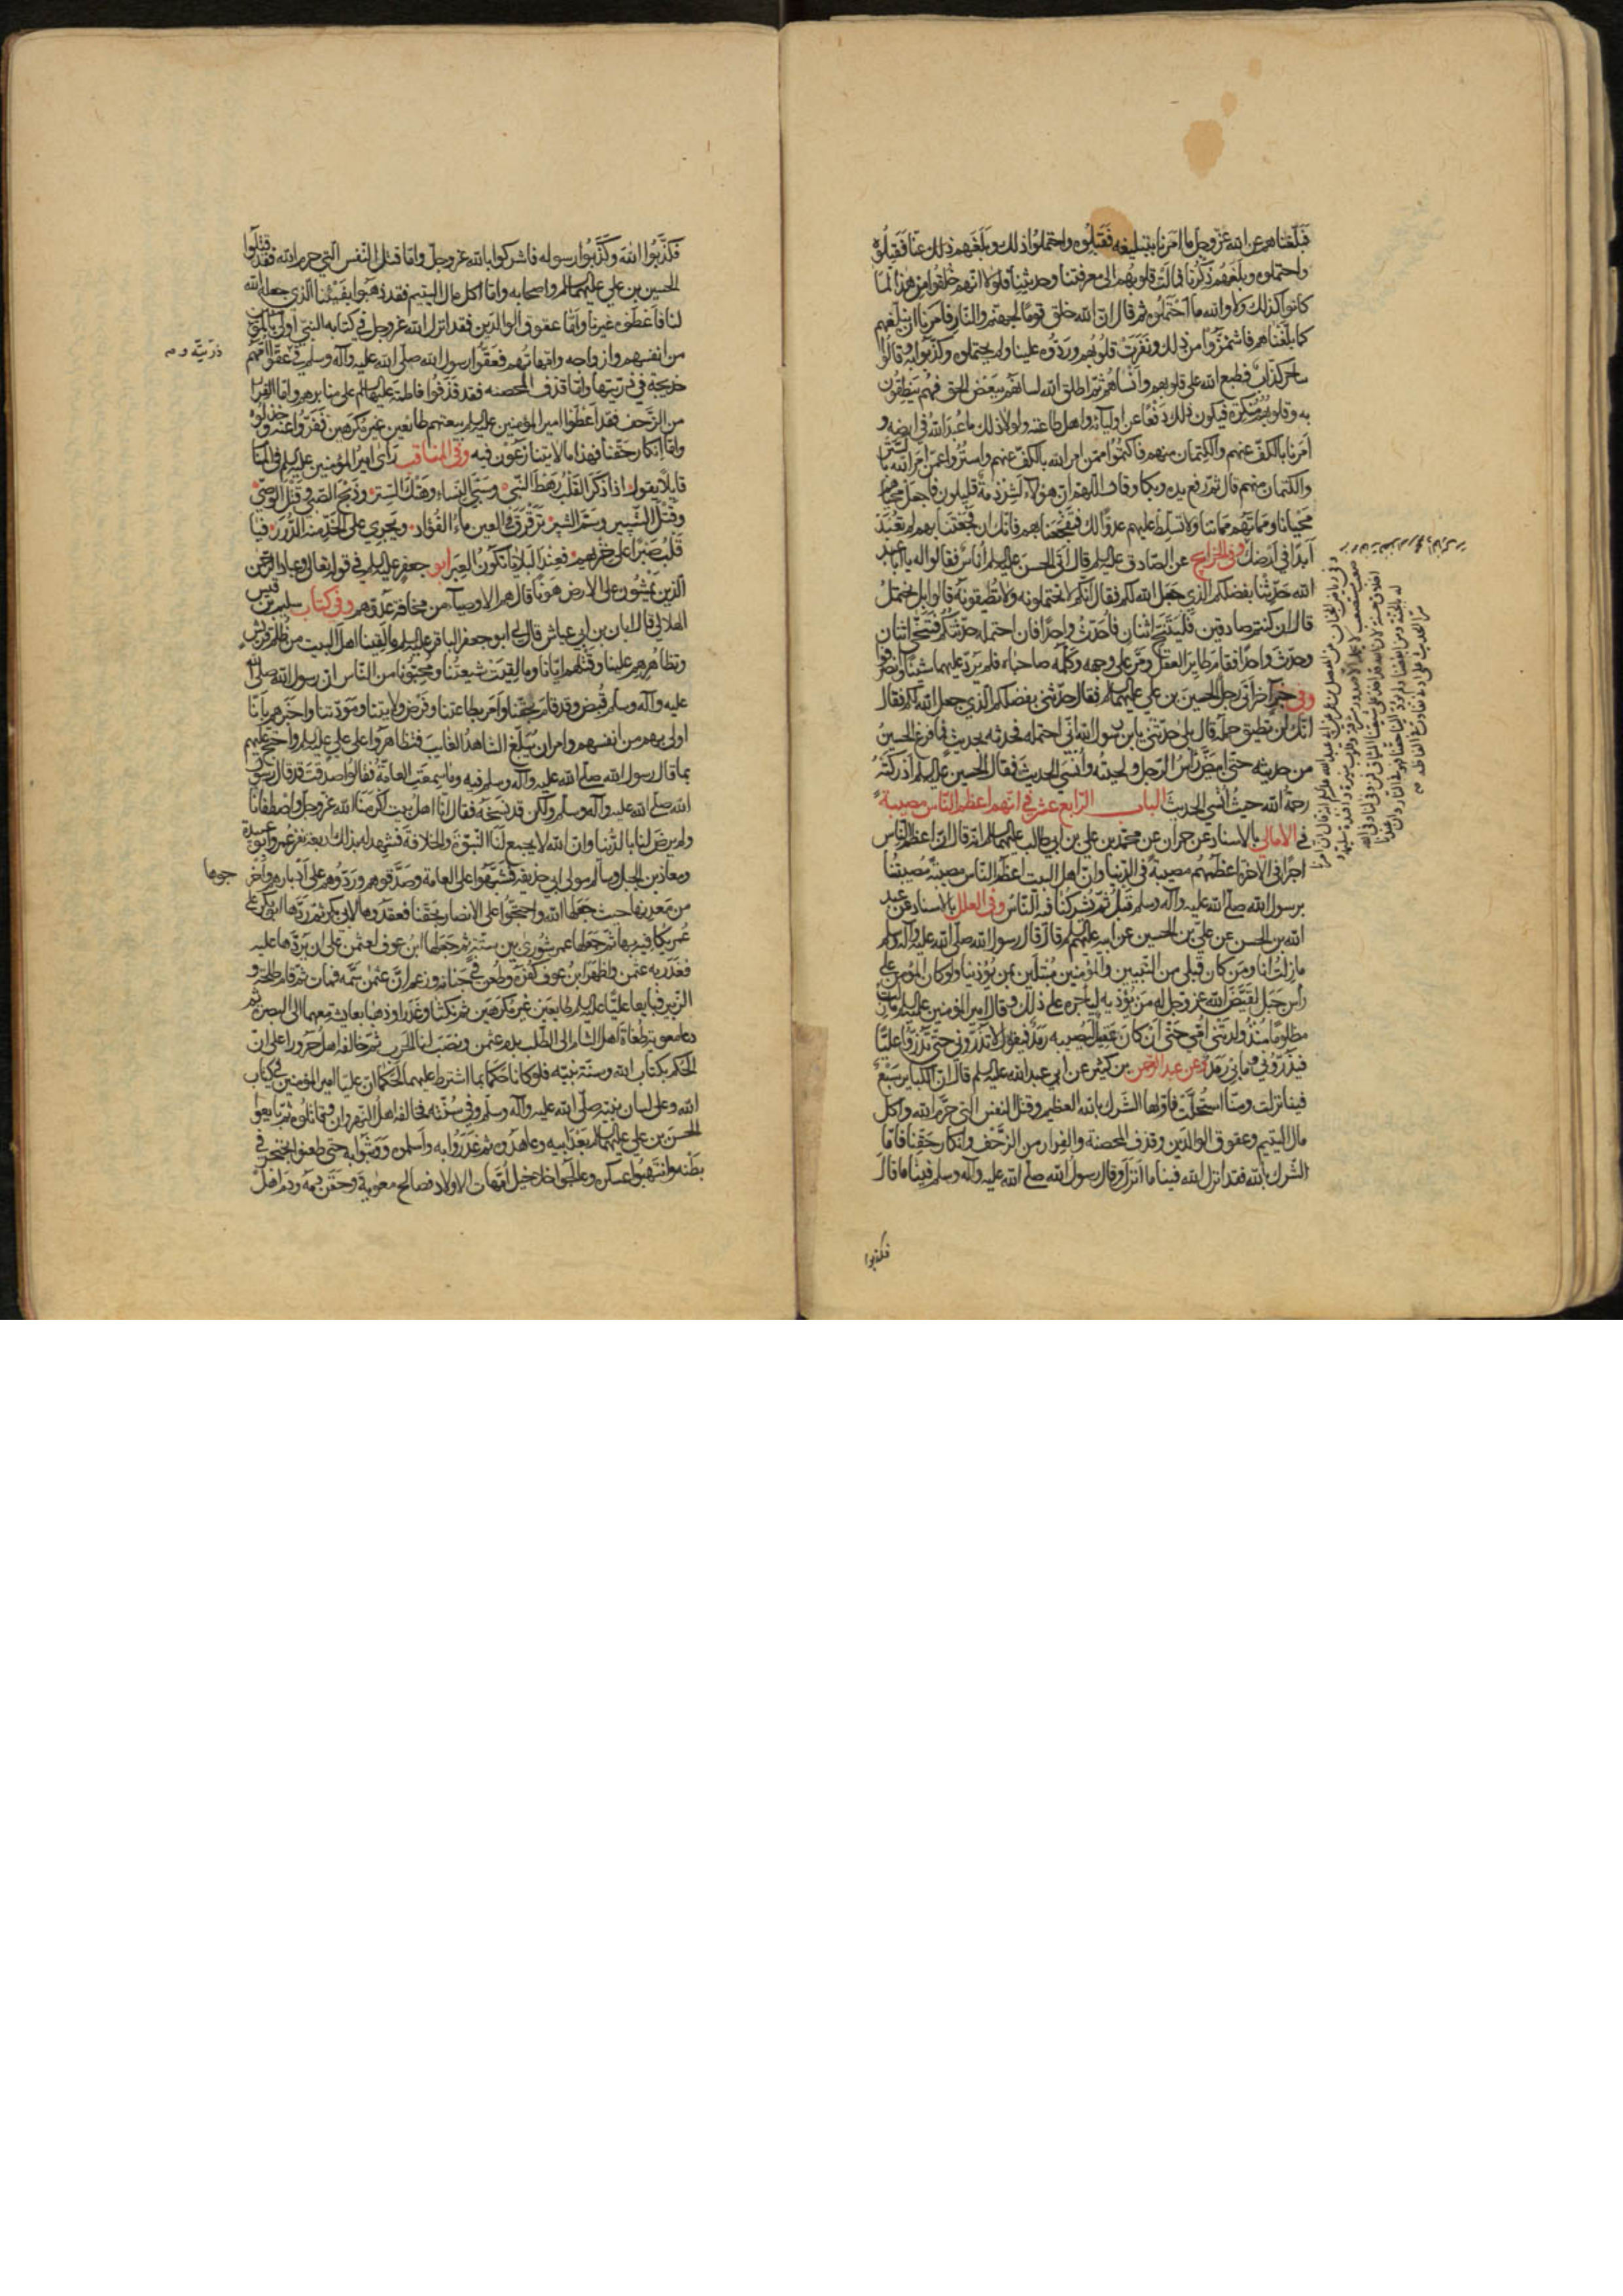 فبلغناهم عن الله عز وجل ما امرنا بتبليغه فقبلوه واحتملوا ذلك وبلغهم ذلك عنا فقبلوه
واحتملوه وبلغهم ذكرنا فمالت قلوبهم الى معرفتنا وحديثنا فلولا انهم خلقوا من هذا لما
كانوا كذلك ولا والله ما احتملوه ثم قال ان الله خلق قوما لجهنم والنار فامرنا ان نبلغهم
كما بلغناهم فاشمئزوا من ذلك ونفرت قلوبهم وردوه علينا ولم يحتملوه وكذبوا به وقالوا
ساحر كذاب فطبع الله على قلوبهم وانساهم ثم اطلق الله لسانهم ببعض الحق فهم ينطقون
به وقلوبهم منكرة فيكون ذلك دفعا عن اوليائه واهل طاعته ولولا ذلك ما عبد الله في ارضه و
امرنا بالكف عنهم والكتمان منهم فاكتموا ممن امر الله بالكف عنهم واستروا عمن امر الله بالستر
والكتمان منهم قال ثم رفع يده وبكا وقال اللهم ان هؤلاء لشرذمة قليلون فاجعل محياهم
محيانا ومماتهم مماتنا ولا تسلط عليهم عدوا لك فتفجعنا بهم فانك ان فجعتنا بهم لم تعبد
ابدا في ارضك وفي الخرايج عن الصادق عليه السلم قال اتى الحسن عليه السلم اناس فقالوا له يا ابا عبد
الله حدثنا بفضلكم الذي جعل الله لكم فقال انكم لا تحتملونه ولا تطيقونه قالوا بلى نحتمل
قال ان كنتم صادقين فليتنح اثنان فاحدث واحدا فان احتمله حدثتكم فتنحى اثنان
وحدث واحدا فقام طاير العقل ومر على وجهه وكلمه صاحباه فلم يرد عليهما شيئا وانصرفوا
وفي خبر آخر اتى رجل الحسين بن علي عليهما السلم فقال حدثني بفضلكم الذي جعل الله لكم فقال
انك لن تطيق حمله قال بلى حدثني يا بن رسول الله اني احتمله فحدثه بحديث فما فرغ الحسين
من حديثه حتى ابيض رأس الرجل ولحيته وأنسي الحديث فقال الحسين عليه السلم ادركته
رحمة الله حيث أنسي الحديث الباب الرابع عشر في انهم اعظم الناس مصيبة
في الامالي بالاسناد عن حمران عن محمد بن علي بن ابي طالب عليهما السلم انه قال ان اعظم الناس
اجرا في الاخرة اعظمهم مصيبة في الدنيا وان اهل البيت اعظم الناس مصيبة مصيبتنا
برسول الله صلى الله عليه وآله وسلم قبل ثم تشركنا فيه الناس وفي العلل بالاسناد عن عبد
الله بن الحسن عن علي بن الحسين عن ابيه عليهم السلم قال قال رسول الله صلى الله عليه وآله وسلم
ما زلت انا ومن كان قبلي من النبيين والمؤمنين مبتلين بمن يؤذينا ولو كان المؤمن على
رأس جبل لقيض الله عز وجل له من يؤذيه ليأجره على ذلك وقال امير المؤمنين عليه السلم ما زلت
مظلوما منذ ولدتني امي حتى ان كان عقيل ليصيبه رمد فيقول لا تذروني حتى تذروا عليا
فيذروني وما بي رمد وعن عبد الرحمن بن كثير عن ابي عبد الله عليه السلم قال ان الكباير سبع
فينا نزلت ومنا استحلت فاولها الشرك بالله العظيم وقتل النفس التي حرم الله واكل
مال اليتيم وعقوق الوالدين وقذف المحصنة والفرار من الزحف وانكار حقنا فاما
الشرك بالله فقد انزل الله فينا ما انزل وقال رسول الله صلى الله عليه وآله وسلم فينا ما قال
فكذبوا
فكذبوا الله وكذبوا رسوله فاشركوا بالله عز وجل واما قتل النفس التي حرم الله فقد قتلوا
الحسين بن علي عليهما السلم واصحابه واما اكل مال اليتيم فقد ذهبوا بفيئنا الذي جعله الله
لنا فاعطوه غيرنا واما عقوق الوالدين فقد انزل الله عز وجل في كتابه النبي اولى بالمؤمنين
من انفسهم وازواجه وامهاتهم فعقوا رسول الله صلى الله عليه وآله وسلم في عقوا امهم
ذريته و م
خديجة في ذريتها واما قذف المحصنه فقد قذفوا فاطمة عليها السلم على منابرهم واما الفرار
من الزحف فقد اعطوا امير المؤمنين عليه السلم بيعتهم طائعين غير مكرهين ففروا عنه وخذلوه
واما انكار حقنا فهذا ما لا يتنازعون فيه وفي المناقب رأى امير المؤمنين عليه السلم في المنام
قايلا يقول اذا ذكر القلب رهط النبي وسبي النساء وهتك الستر وذبح الصبي وقتل الوصي
وقتل الشبير وسم الشبر ترقرق في العين ماء الفؤاد وتجري على الخد منه الدرر فيا
قلب صبرا على حزنهم فعند البلايا تكون العبر ابو جعفر عليه السلم في قوله تعالى وعباد الرحمن
الذين يمشون على الارض هونا قال هم الاوصياء من مخافة عدوهم وفي كتاب سليم بن قيس
الهلالي قال ابان بن ابي عياش قال لي ابو جعفر الباقر عليه السلم ما لقينا اهل البيت من ظلم قريش
وتظاهرهم علينا وقتلهم ايانا وما لقيت شيعتنا ومحبونا من الناس ان رسول الله صلى الله
عليه وآله وسلم قبض وقد قام بحقنا وامر بطاعتنا وفرض ولايتنا ومودتنا واخبرهم بانا
اولى بهم من انفسهم وامر ان يبلغ الشاهد الغايب فتظاهروا على علي عليه السلم واحتج عليهم
بما قال رسول الله صلى الله عليه وآله وسلم فيه وما سمعت العامة فقالوا صدقت قد قال رسول
الله صلى الله عليه وآله وسلم ولكن قد نسخه فقال انا اهل بيت اكرمنا الله عز وجل واصطفانا
ولم يرض لنا بالدنيا وان الله لا يجمع لنا النبوة والخلافة فشهد له بذلك اربعة نفر عمر وابو عبيدة
ومعاذ بن جبل وسالم مولى ابي حذيفة فشبهوا على العامة وصدقوهم وردوهم على أدبارهم واخر
جوها
من معدنها حيث جعلها الله واحتجوا على الانصار بحقنا فعقدوها لابي بكر ثم ردها ابو بكر على
عمر يكافيه بها ثم جعلها عمر شورى بين ستة ثم جعلها ابن عوف لعثمن على ان يردها عليه
فغدر به عثمن واظهر ابن عوف كفره وطعن في حياته وزعم ان عثمن سمه فمات ثم قام طلحة و
الزبير فبايعا عليا عليه السلم طايعين غير مكرهين ثم نكثا وغدرا وذهبا بعايشة معهما الى البصرة ثم
دعا معوية طغاة اهل الشام الى الطلب بدم عثمن ونصب لنا الحرب ثم خالفه اهل حرورا على ان
الحكم بكتاب الله وسنة نبيه فلو كانا حكما بما اشترط عليهما لحكما ان عليا امير المؤمنين في كتاب
الله وعلى لسان نبيه صلى الله عليه وآله وسلم وفي سنته فخالفه اهل النهروان وقاتلوه ثم بايعوا
الحسن بن علي عليهما السلم بعد ابيه وعاهدوه ثم غدروا به واسلموه ووثبوا به حتى طعنوه بخنجر في
بطنه وانتهبوا عسكره وعالجوا خلاخيل امهات الاولاد فصالح معوية وحقن دمه ودم اهل